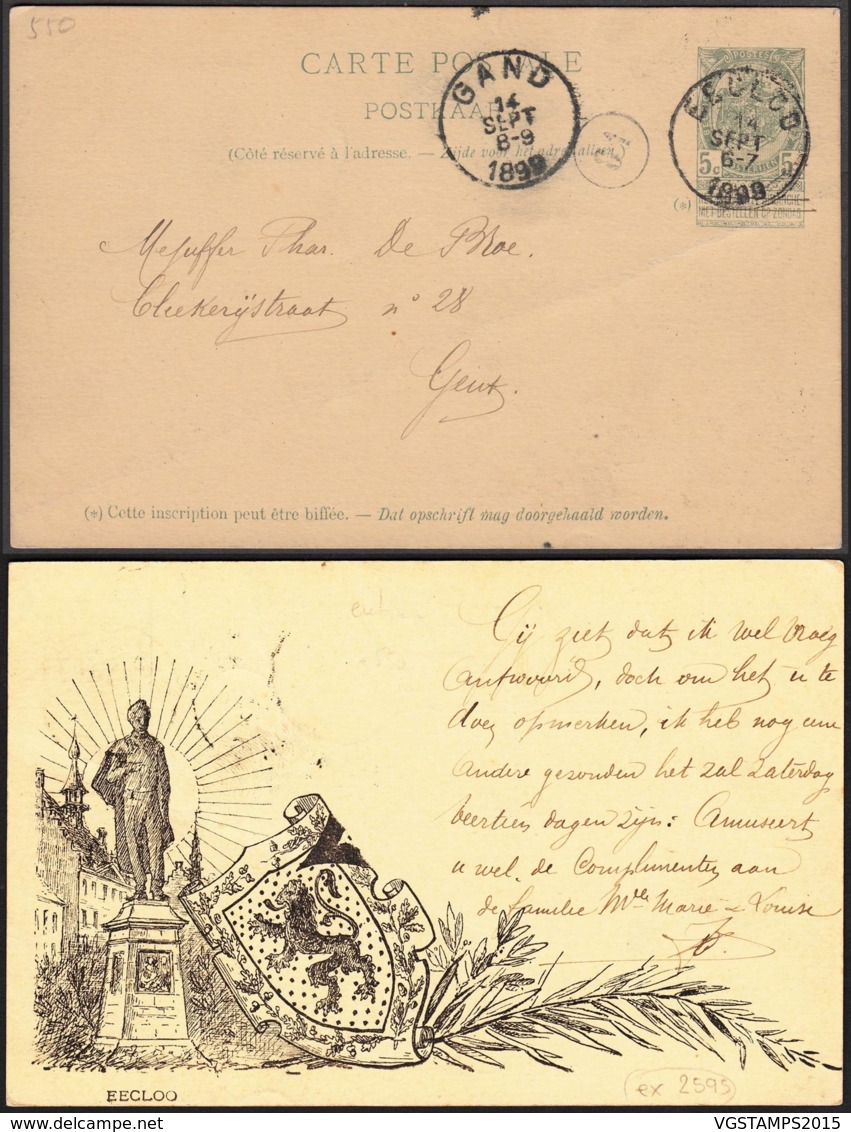 550
CARTE POSTALE
POSTKAART
(Côté réservé à l'adresse. — Zijde voor het adres alleen.)
GAND
14
SEPT
8-9
1899
EECLOO
14
SEPT
6-7
1899
POSTES
5c 5c
(*)
NIET BESTELLEN OP ZONDAG
Mejuffer Phar. De Broe.
Bleekerijstraat n° 28
Gent.
(*) Cette inscription peut être biffée. — Dat opschrift mag doorgehaald worden.
Gij ziet dat ik wel vroeg
antwoord, doch om het u te
doen opmerken, ik heb nog eene
andere gezonden het zal zaterdag
veertien dagen zijn: Amuseert
u wel. de Complimenten aan
de familie Mlle Marie-Louise
EECLOO
ex 2595
VGSTAMPS2015